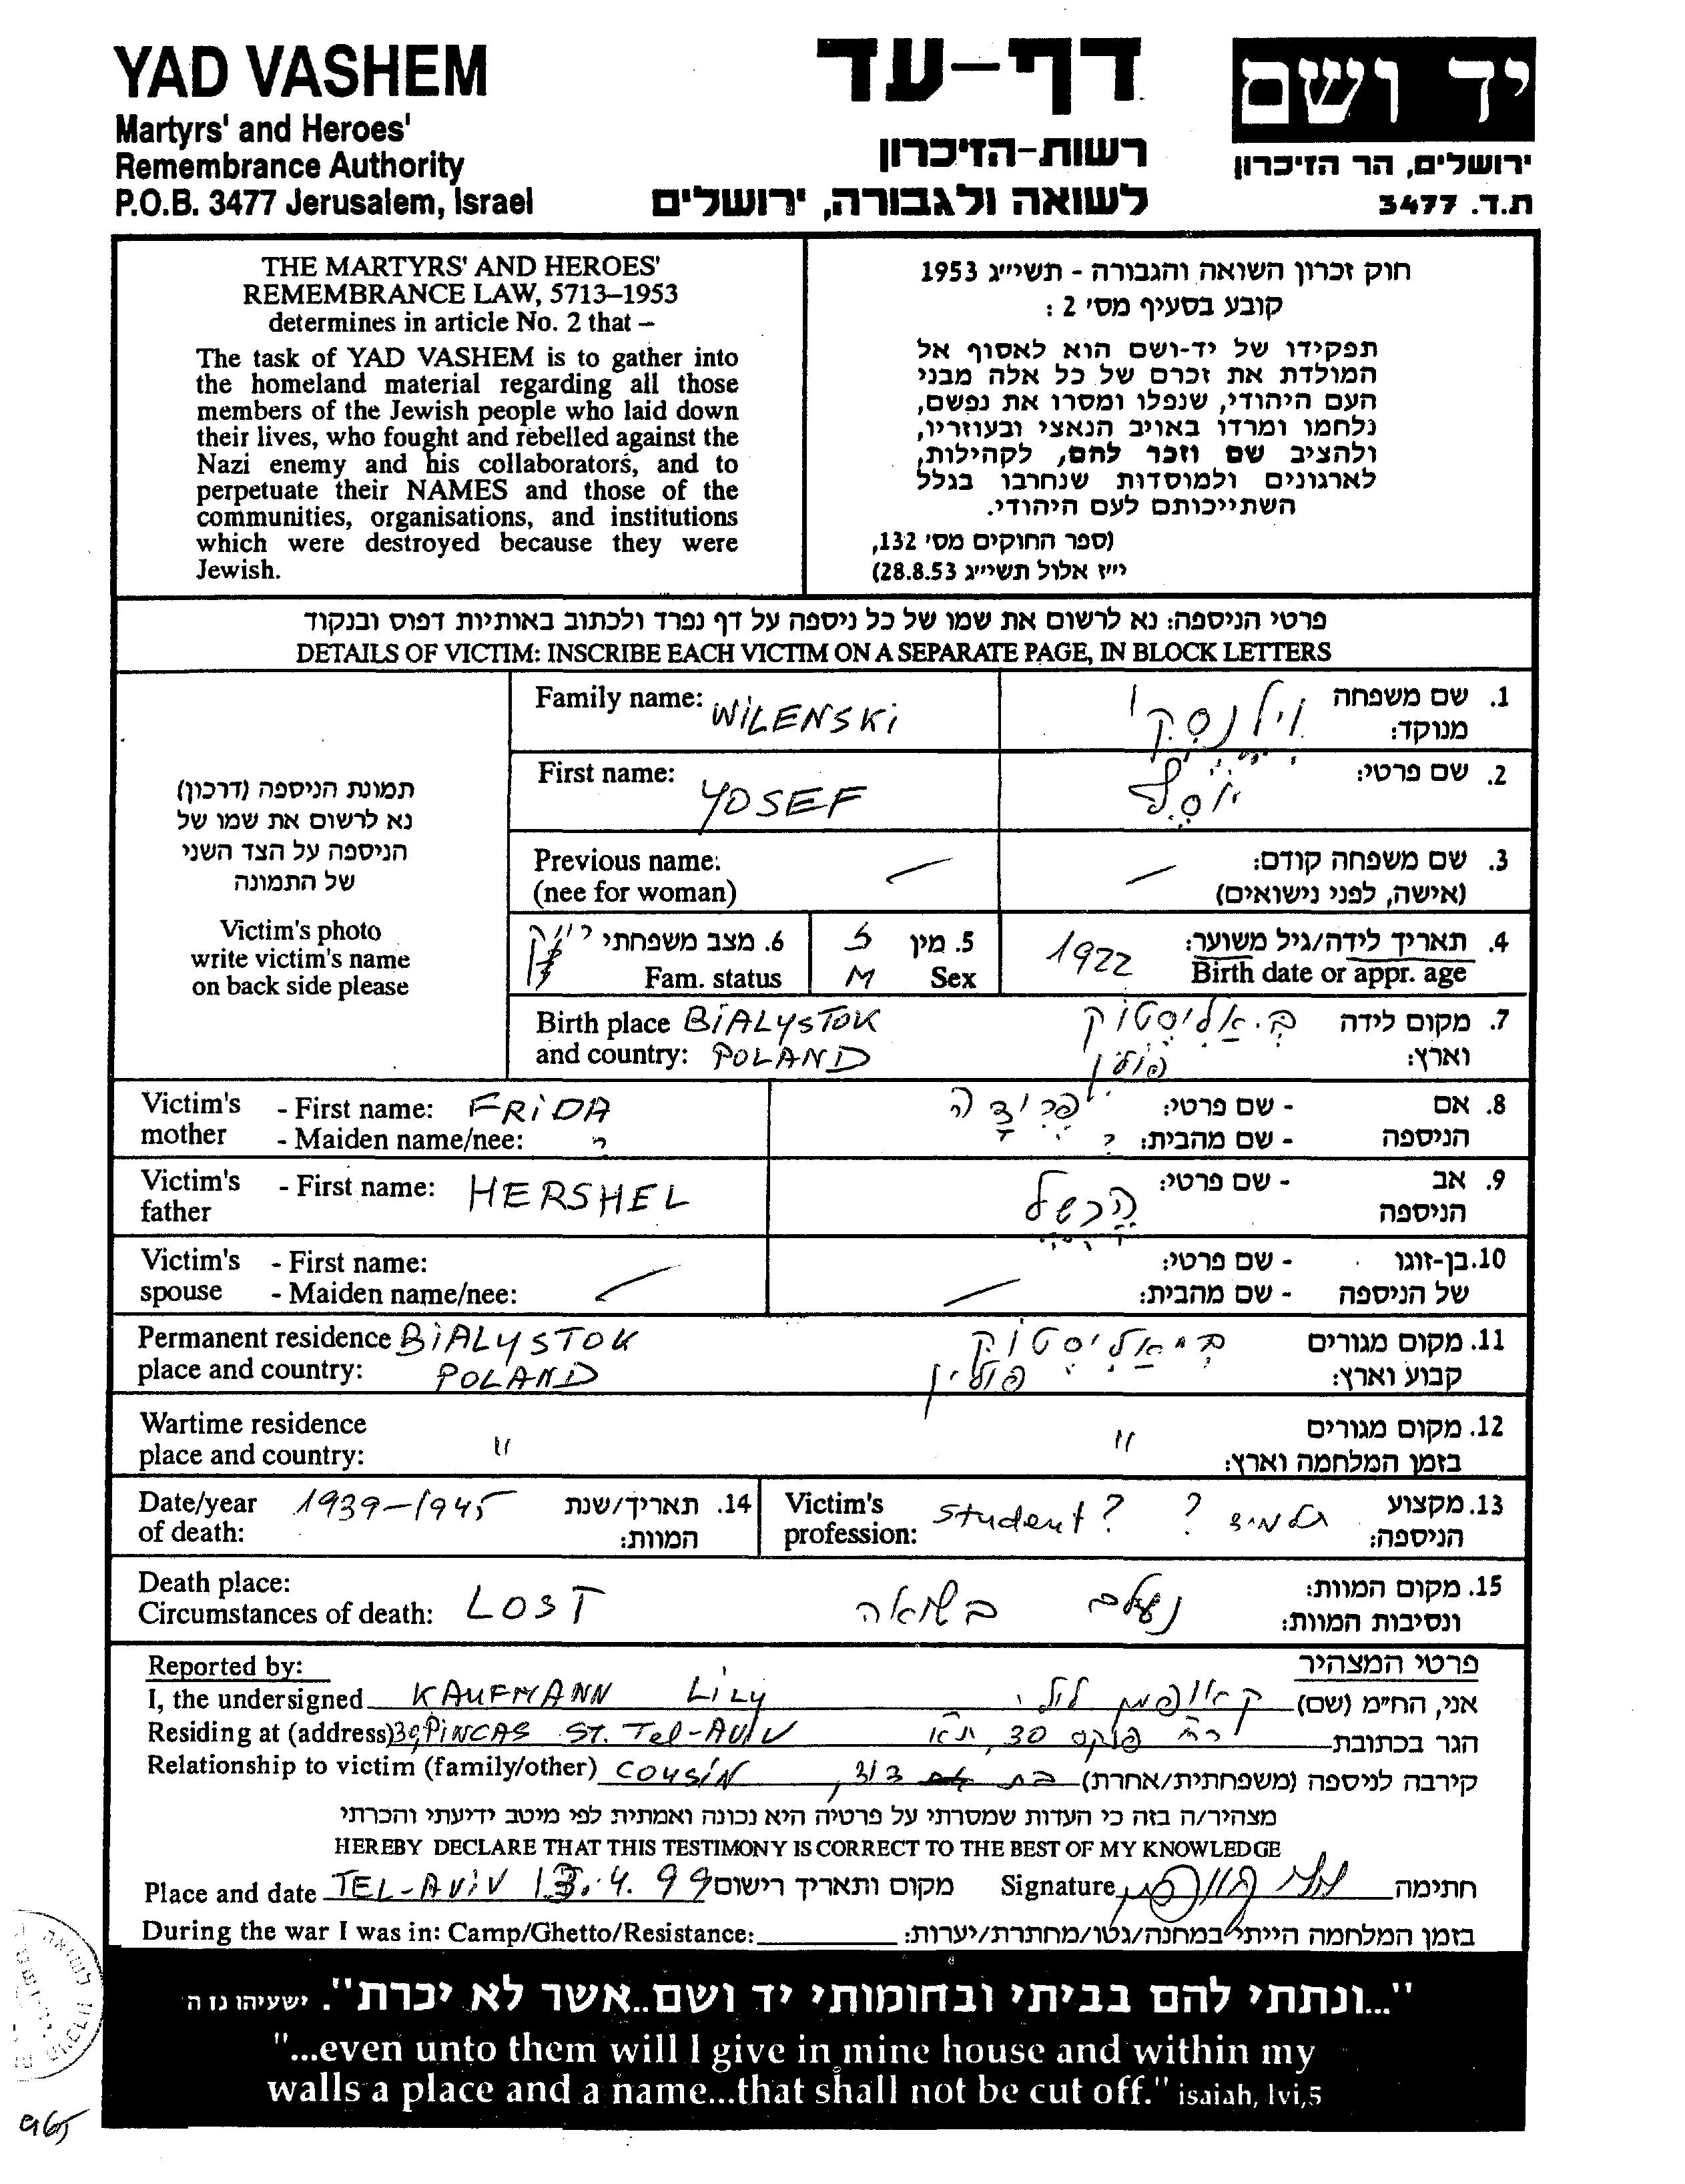 YAD VASHEM
Martyrs' and Heroes'
Remembrance Authority
P.O.B. 3477 Jerusalem, Israel
דף-עד
רשות-הזיכרון
לשואה ולגבורה, ירושלים
יד ושם
ירושלים, הר הזיכרון
ת.ד. 3477
THE MARTYRS' AND HEROES'
REMEMBRANCE LAW, 5713–1953
determines in article No. 2 that –
The task of YAD VASHEM is to gather into
the homeland material regarding all those
members of the Jewish people who laid down
their lives, who fought and rebelled against the
Nazi enemy and his collaborators, and to
perpetuate their NAMES and those of the
communities, organisations, and institutions
which were destroyed because they were
Jewish.
חוק זכרון השואה והגבורה - תשי״ג 1953
קובע בסעיף מס' 2 :
תפקידו של יד-ושם הוא לאסוף אל
המולדת את זכרם של כל אלה מבני
העם היהודי, שנפלו ומסרו את נפשם,
נלחמו ומרדו באויב הנאצי ובעוזריו,
ולהציב שם וזכר להם, לקהילות,
לארגונים ולמוסדות שנחרבו בגלל
השתייכותם לעם היהודי.
(ספר החוקים מס' 132,
י״ז אלול תשי״ג 28.8.53)
פרטי הניספה: נא לרשום את שמו של כל ניספה על דף נפרד ולכתוב באותיות דפוס ובנקוד
DETAILS OF VICTIM: INSCRIBE EACH VICTIM ON A SEPARATE PAGE, IN BLOCK LETTERS
תמונת הניספה (דרכון)
נא לרשום את שמו של
הניספה על הצד השני
של התמונה
Victim's photo
write victim's name
on back side please
Family name: WiLENSKi
1. שם משפחה מנוקד: וילנסקי
First name: YOSEF
2. שם פרטי: יוסף
Previous name:
(nee for woman)
3. שם משפחה קודם:
(אישה, לפני נישואים)
6. מצב משפחתי
Fam. status
5. מין ז
Sex M
4. תאריך לידה/גיל משוער:
Birth date or appr. age 1922
Birth place BiALYSTOK
and country: POLAND
7. מקום לידה ביאליסטוק
וארץ: פולין
Victim's - First name: FRiDA
mother - Maiden name/nee: ?
8. אם - שם פרטי: פרידה
הניספה - שם מהבית: ?
Victim's - First name: HERSHEL
father
9. אב - שם פרטי: הרשל
הניספה
Victim's - First name:
spouse - Maiden name/nee:
10. בן-זוגו - שם פרטי:
של הניספה - שם מהבית:
Permanent residence BiALYSTOK
place and country: POLAND
11. מקום מגורים ביאליסטוק
קבוע וארץ: פולין
Wartime residence
place and country: "
12. מקום מגורים "
בזמן המלחמה וארץ:
Date/year 1939-1945
of death:
14. תאריך/שנת
המוות:
Victim's
profession: student ?
13. מקצוע תלמיד ?
הניספה:
Death place:
Circumstances of death: LOST
15. מקום המוות: נעלם בשואה
ונסיבות המוות:
Reported by:
פרטי המצהיר
I, the undersigned KAUFMANN LiLY
אני, הח״מ (שם) קאופמן לילי
Residing at (address) 30, PiNCAS ST. Tel-AViV
הגר בכתובת רח' פנקס 30, ת"א
Relationship to victim (family/other) COUSiN
קירבה לניספה (משפחתית/אחרת) בת דוד
מצהיר/ה בזה כי העדות שמסרתי על פרטיה היא נכונה ואמתית לפי מיטב ידיעתי והכרתי
HEREBY DECLARE THAT THIS TESTIMONY IS CORRECT TO THE BEST OF MY KNOWLEDGE
Place and date TEL-AViV 13.4.99 מקום ותאריך רישום
Signature חתימה
During the war I was in: Camp/Ghetto/Resistance:
בזמן המלחמה הייתי במחנה/גטו/מחתרת/יערות:
"...ונתתי להם בביתי ובחומותי יד ושם..אשר לא יכרת". ישעיהו נו ה
"...even unto them will I give in mine house and within my
walls a place and a name...that shall not be cut off." isaiah, lvi,5
965